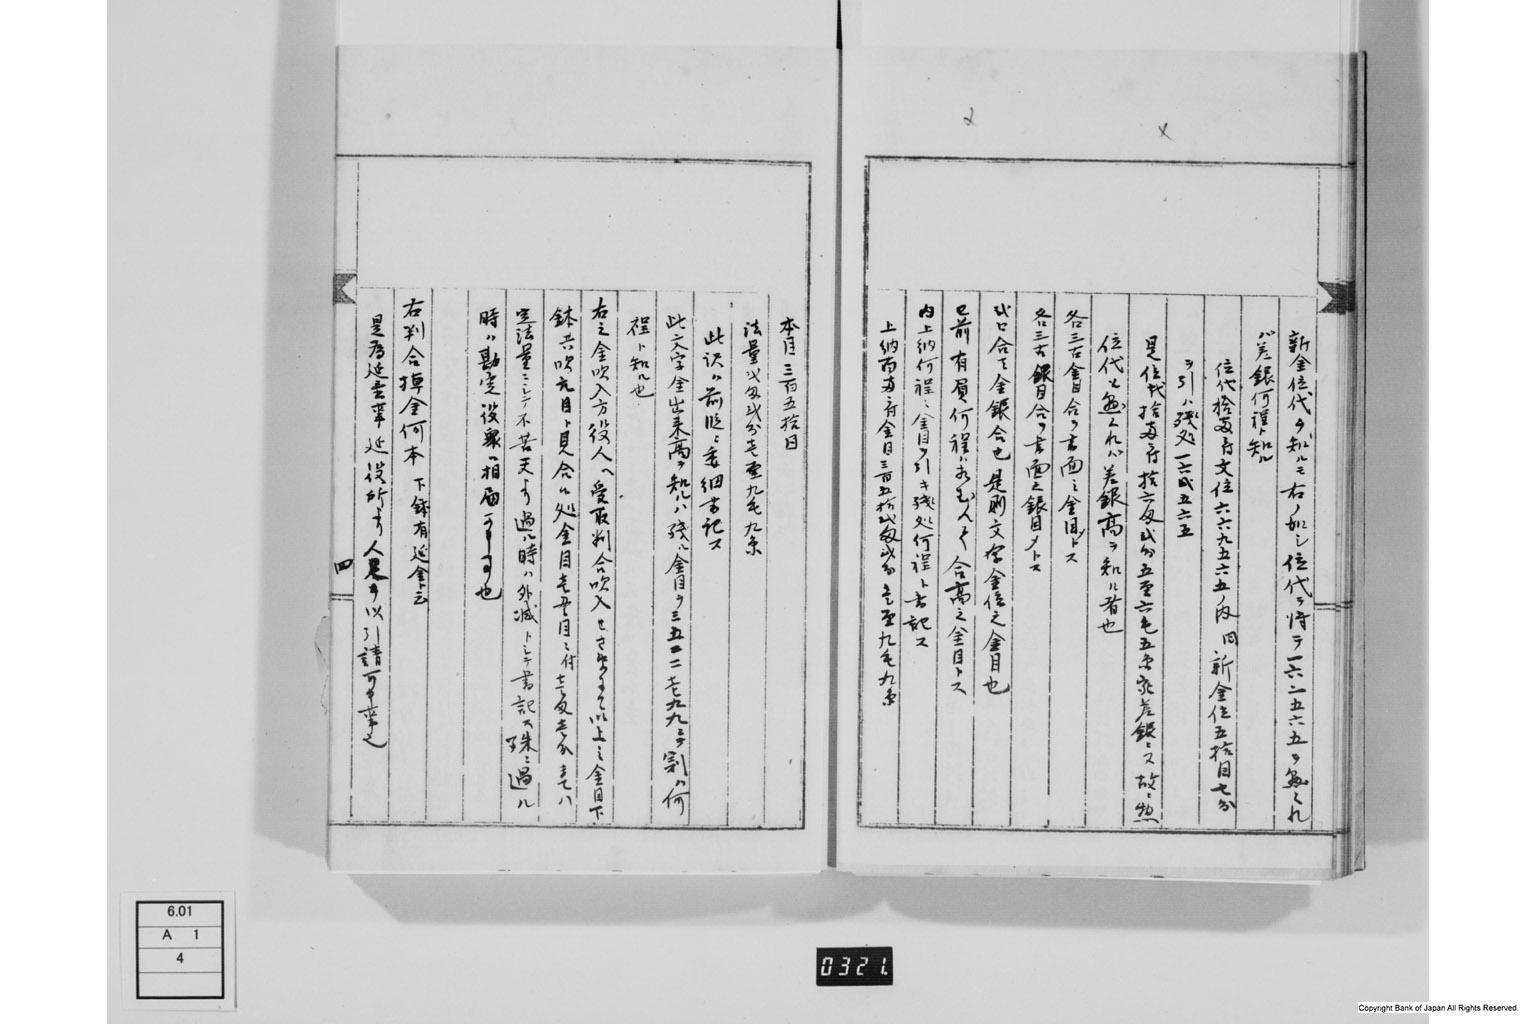 新金位代ヲ知ルモ右ノ如シ位代ヲ得テ一六二五六五ヲ
バ差銀何程ト知ル
位代拾両ニ付文位六六九五六五ノ内同新金位五拾目七分
ヲ引ハ残処一六二五六五
是位代拾両ニ付拾六匁弐分五厘六毛五
位代ヲ 差銀高ヲ知ル者也
各三古金目合ヲ書面之金目トス
各三古銀目合ヲ書面之銀目トス
弐口合テ金銀合也是則文字金位之金目也
已前有員何程 合高之金目トス
内上納何程ト金目ヲ引キ残処何程ト書記ス
上納百両ニ付金目三百五拾弐匁弐分壱厘九毛九糸
本目三百五拾目
法量弐匁弐分壱厘九毛九糸
此訳ハ前段ニ委細書記ス
此文字金出来高ヲ知ルハ残ル金目ヲ三五二二一九九ニテ割ハ何
程ト知ル也
右之金吹入方役人ヘ受取判合吹入 以上之金目下
鉢共吹元目ト見合ル処金目壱〆目ニ付壱匁壱分 ハ
定法量ニシテ不苦夫ヨリ過ル時ハ外減トシテ書記ス殊ニ過ル
時ハ勘定役衆ヘ相届 也
右判合棹金何本 下鉢有延金ト云
是為延 延役所ヨリ人足ヲ以引請
四
6.01
A 1
4
0321.
Copyright Bank of Japan All Rights Reserved.